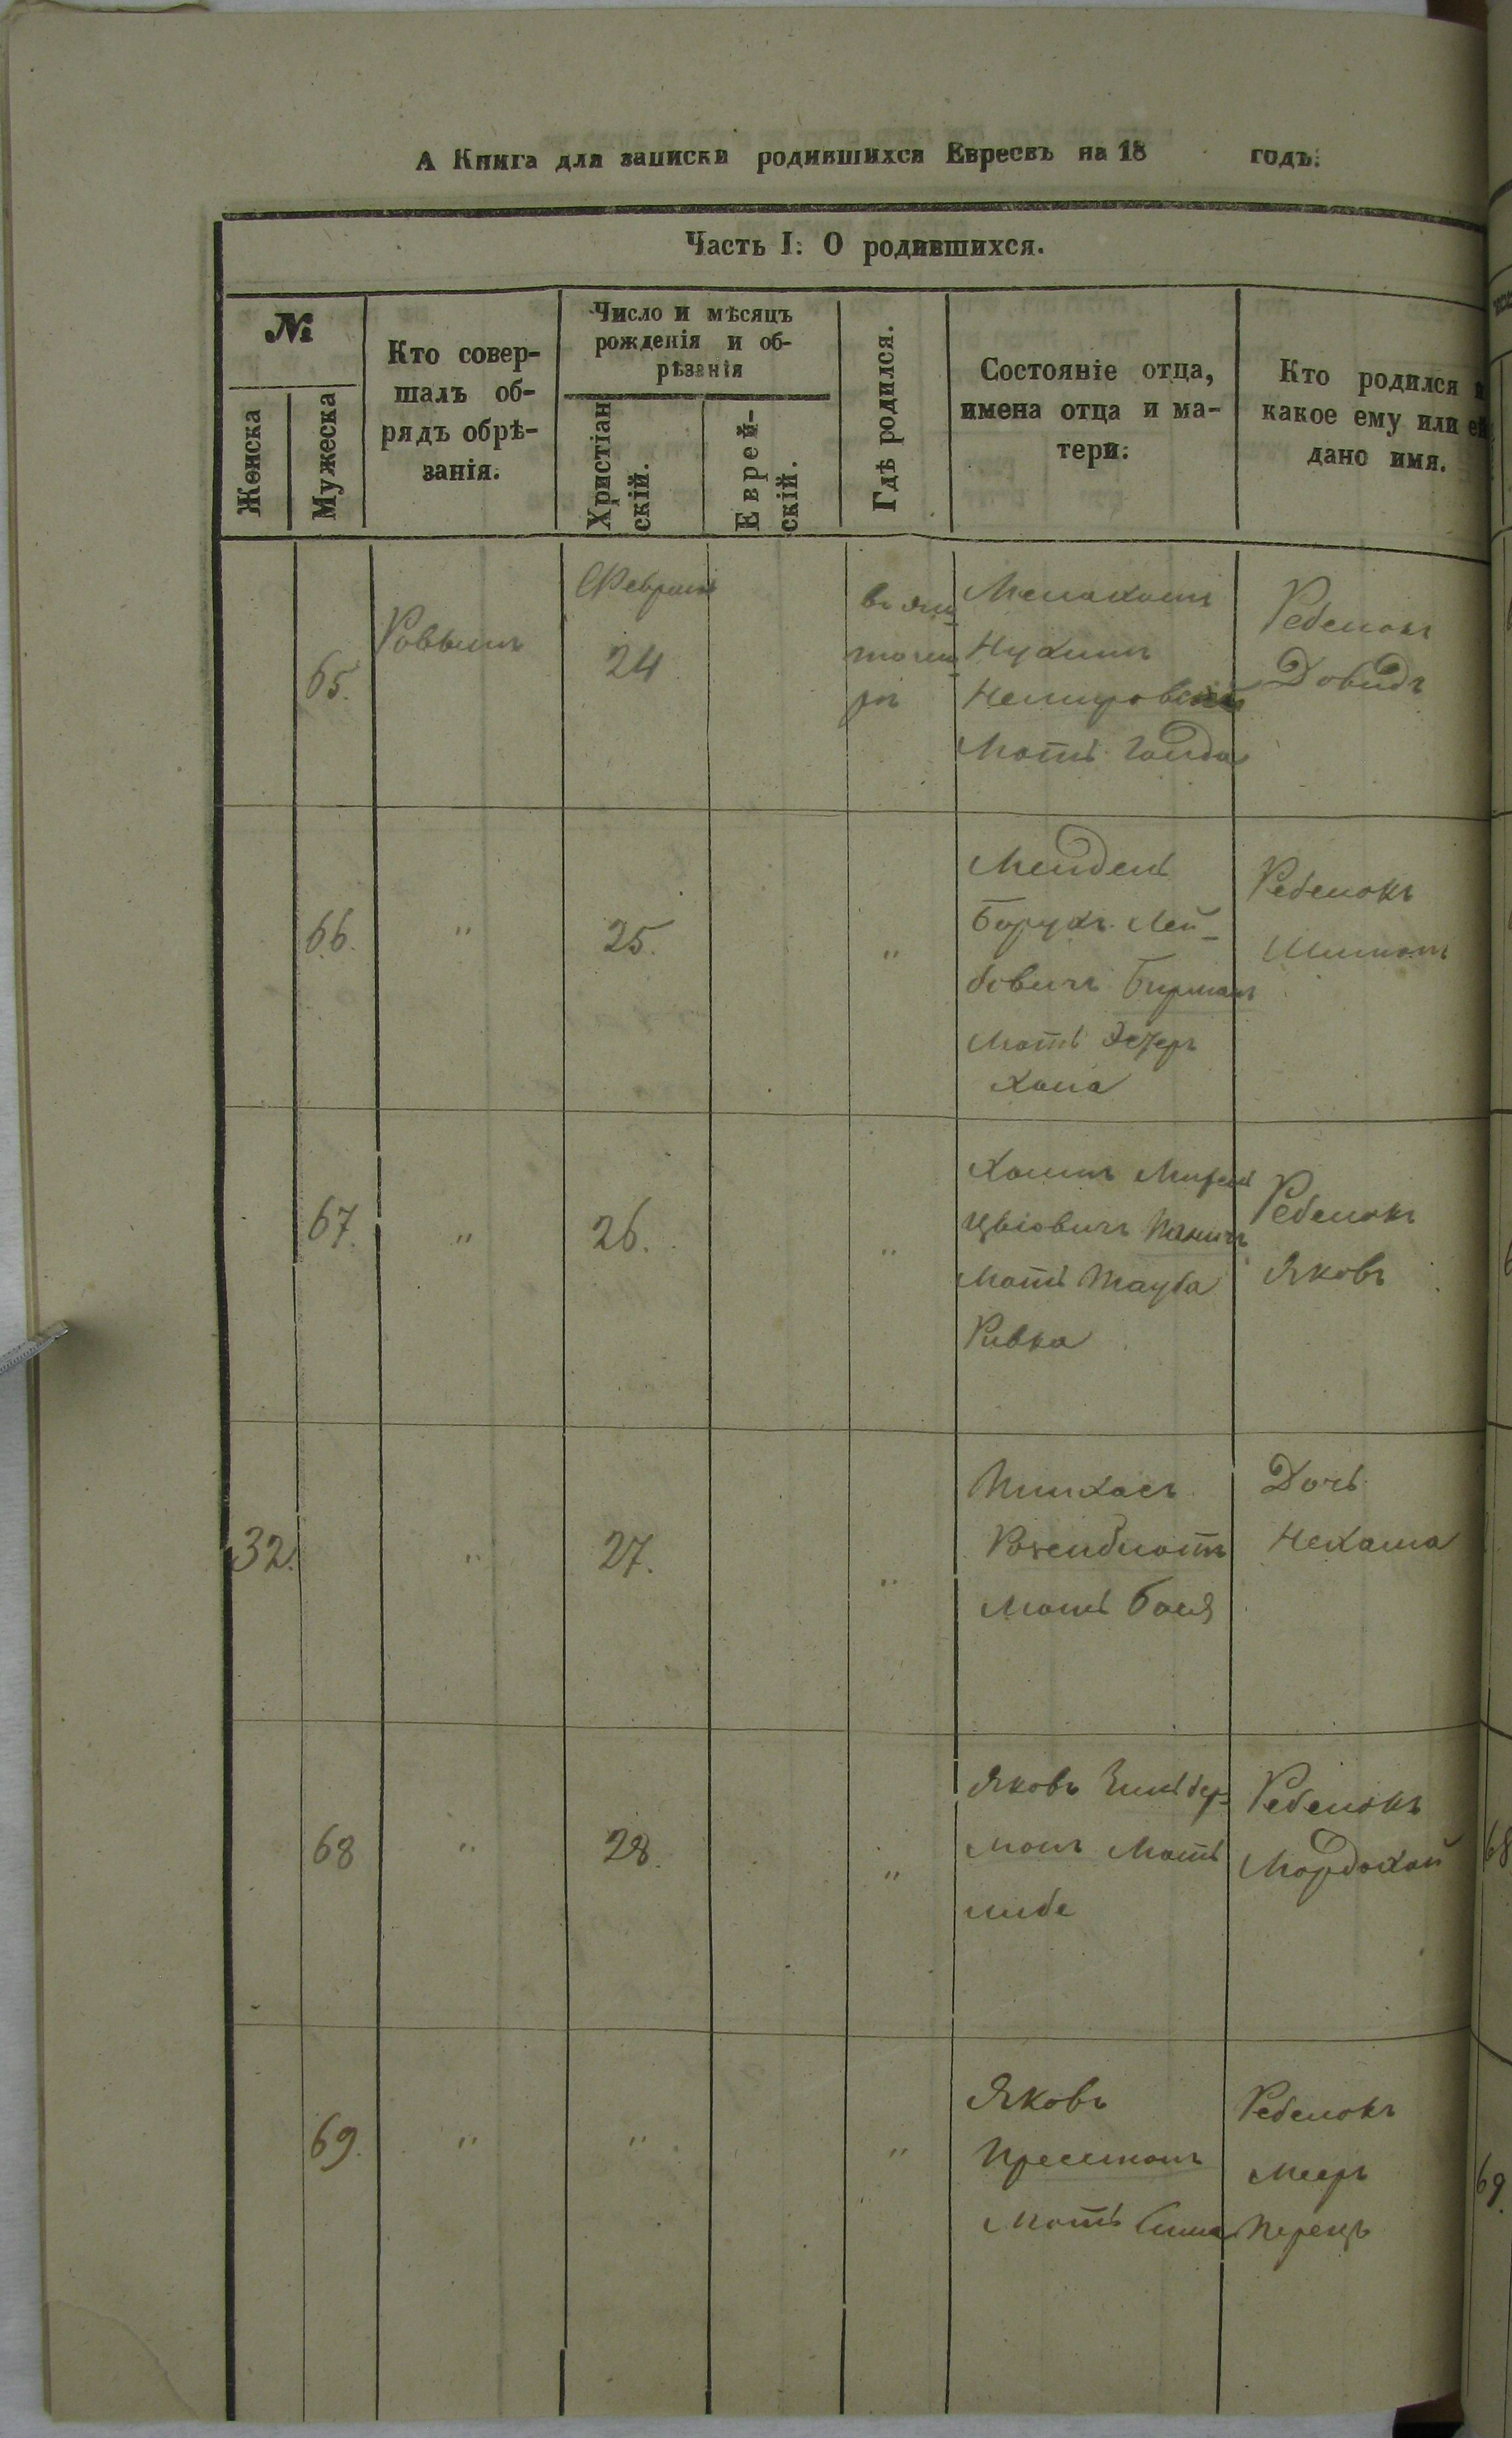 А Книга для записки родившихся Евреевъ на 18 годъ.
Часть I: О родившихся.
№
Женска
Мужеска
Кто совер-
шалъ об-
рядъ обрѣ-
занія.
Число и мѣсяцъ
рожденія и об-
рѣзанія
Христіан
скій.
Еврей-
скій.
Гдѣ родился.
Состояніе отца,
имена отца и ма-
тери.
Кто родился и
какое ему или ей
дано имя.
65.
Раввинъ
Февраля
24
въ Жи
томи
рѣ
Менахемъ
Нухимъ
Немировскій
Мать Голда
Ребенокъ
Довидъ
66.
"
25.
"
Мендель
Борухъ Лей-
бовичъ Бирманъ
Мать Эстеръ
Хана
Ребенокъ
Шимонъ
67.
"
26.
"
Хаимъ
Мать Тауба
Ривка
Ребенокъ
Яковъ
32.
"
27.
"
Пинхасъ
Розенблатъ
Мать Бася
Дочь
Нехама
68
"
28.
"
Яковъ Зильбер
манъ Мать
Либе
Ребенокъ
Мордохай
68
69.
"
"
"
Яковъ
Пресманъ
Мать Сима
Ребенокъ
Меер
Перецъ
69.